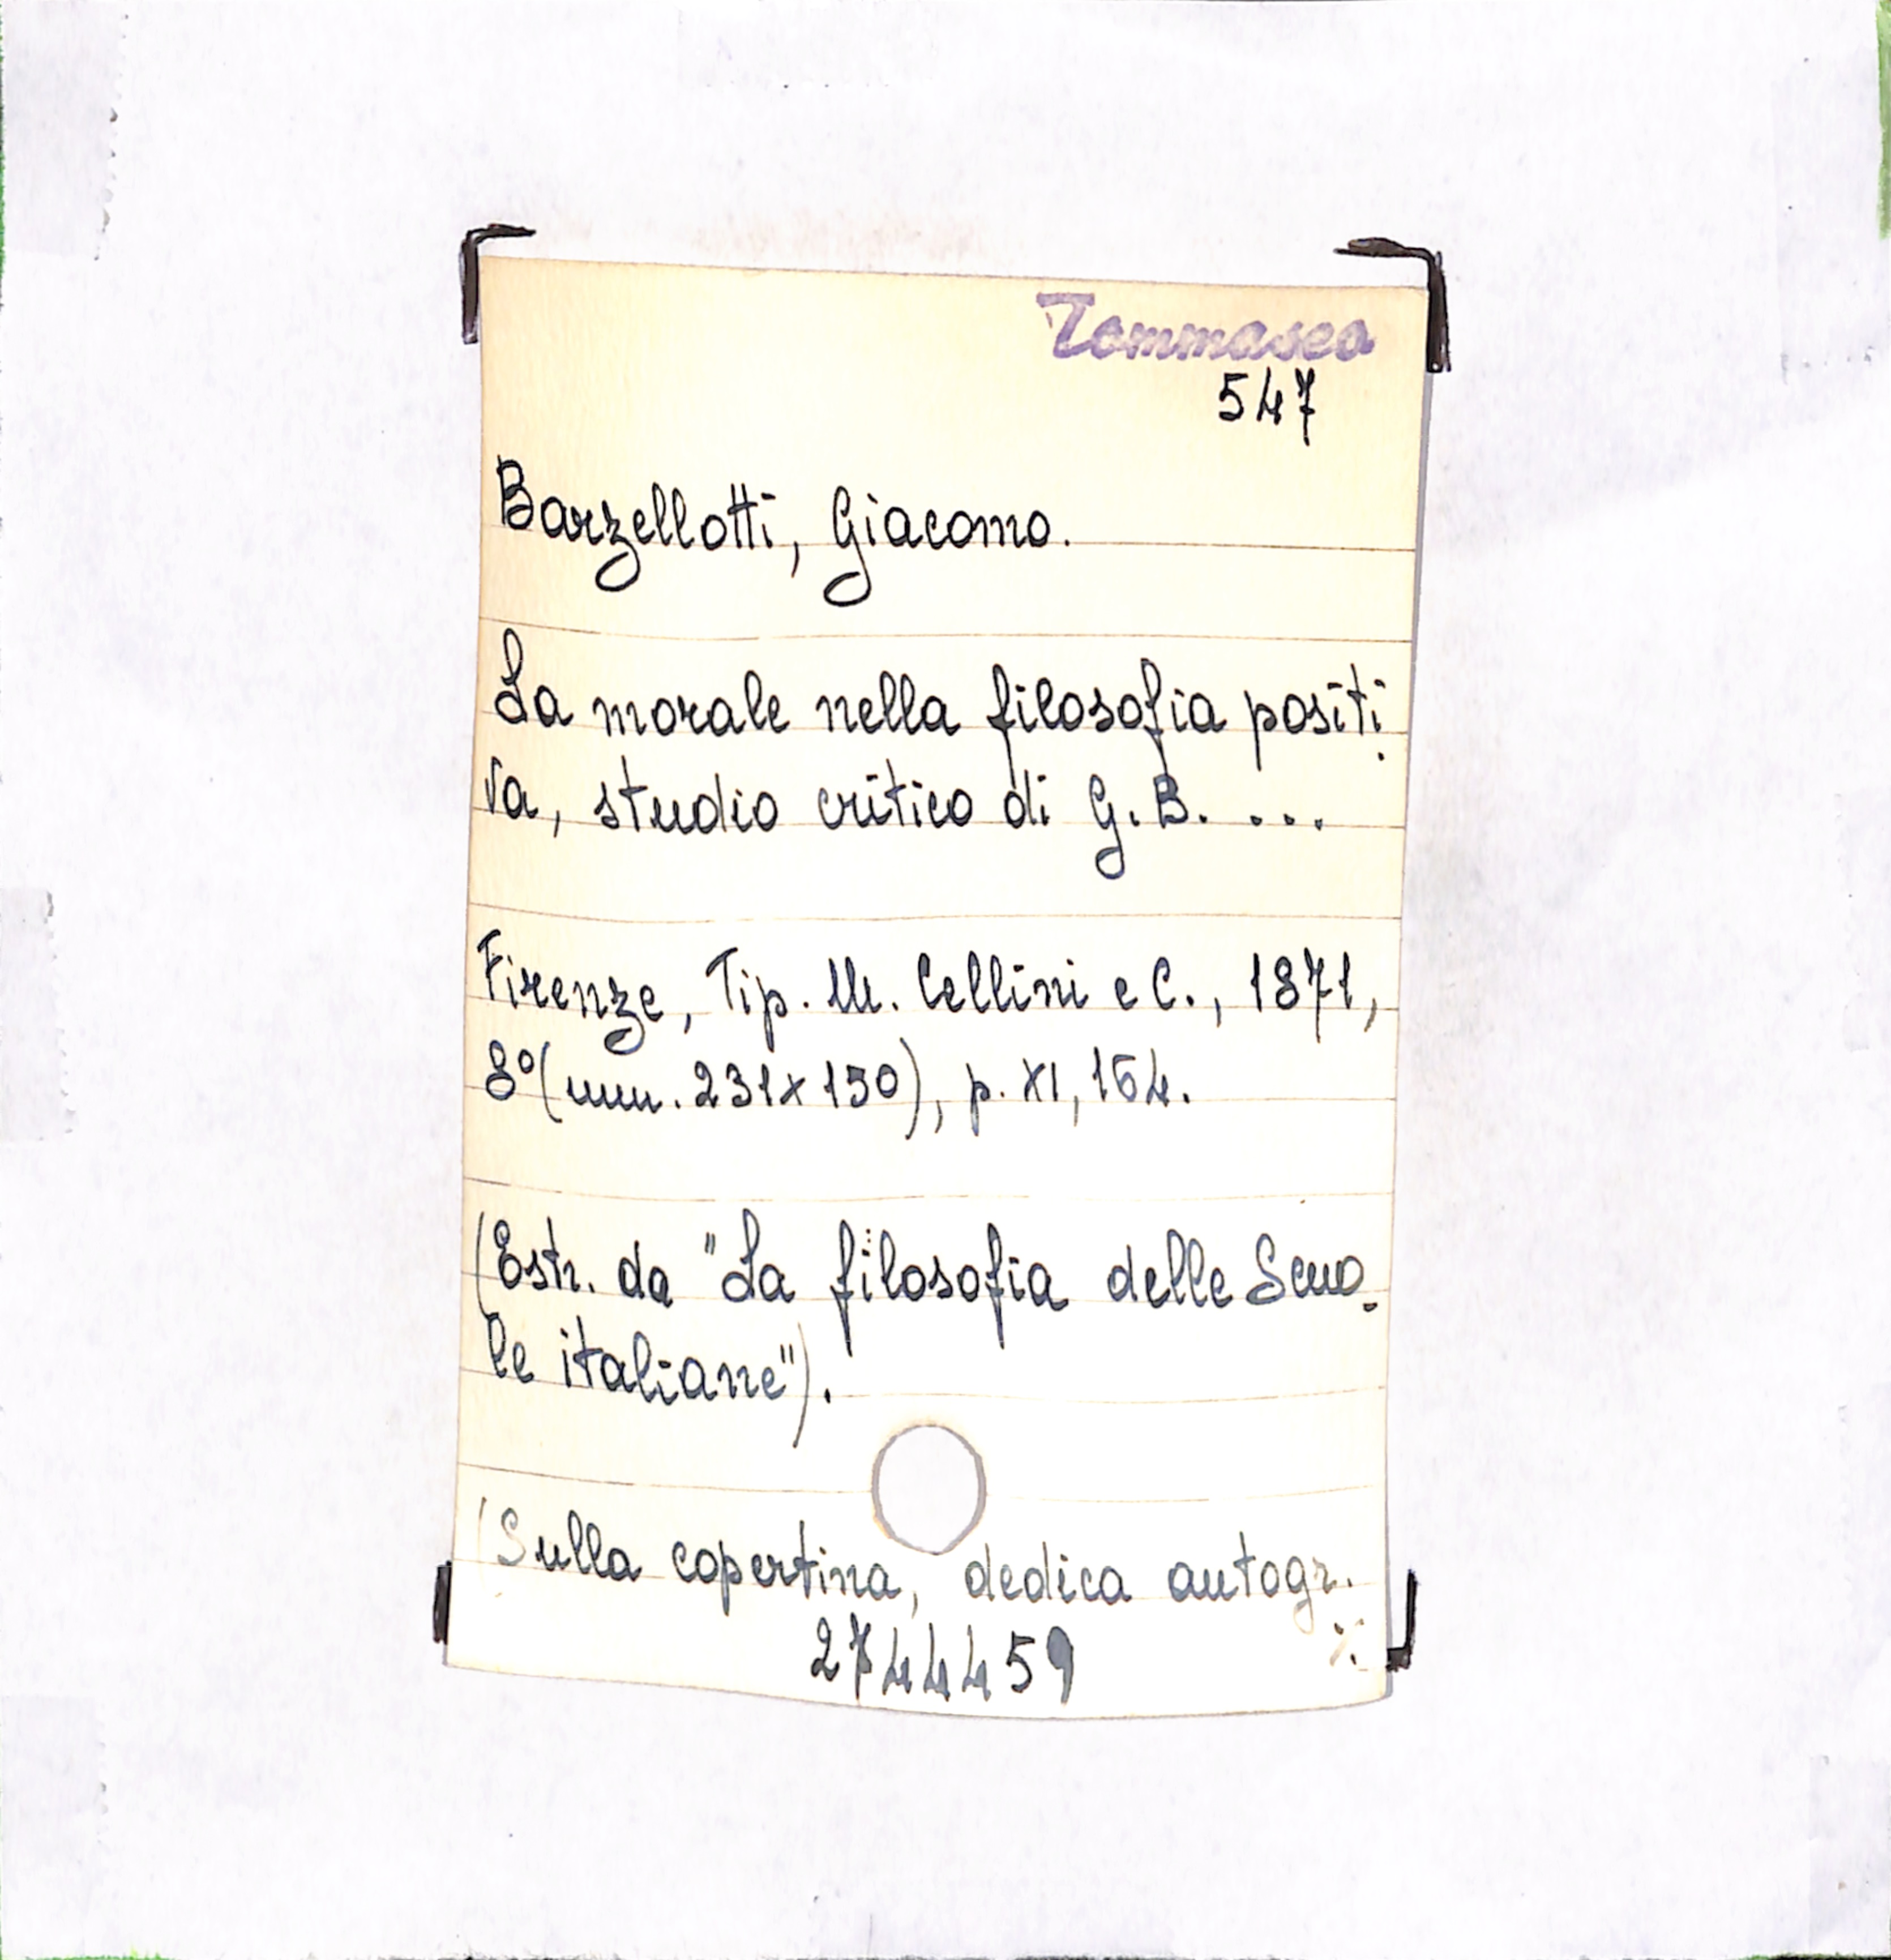 Tommaseo
547
Barzellotti, Giacomo.
La morale nella filosofia positi
va, studio critico di G.B. ...
Firenze, Tip. M. Cellini e C., 1871,
8°(mm. 231x150), p. XI, 154.
(Estr. da "La filosofia delle Scuo-
le italiane").
(Sulla copertina, dedica autogr.
2744459